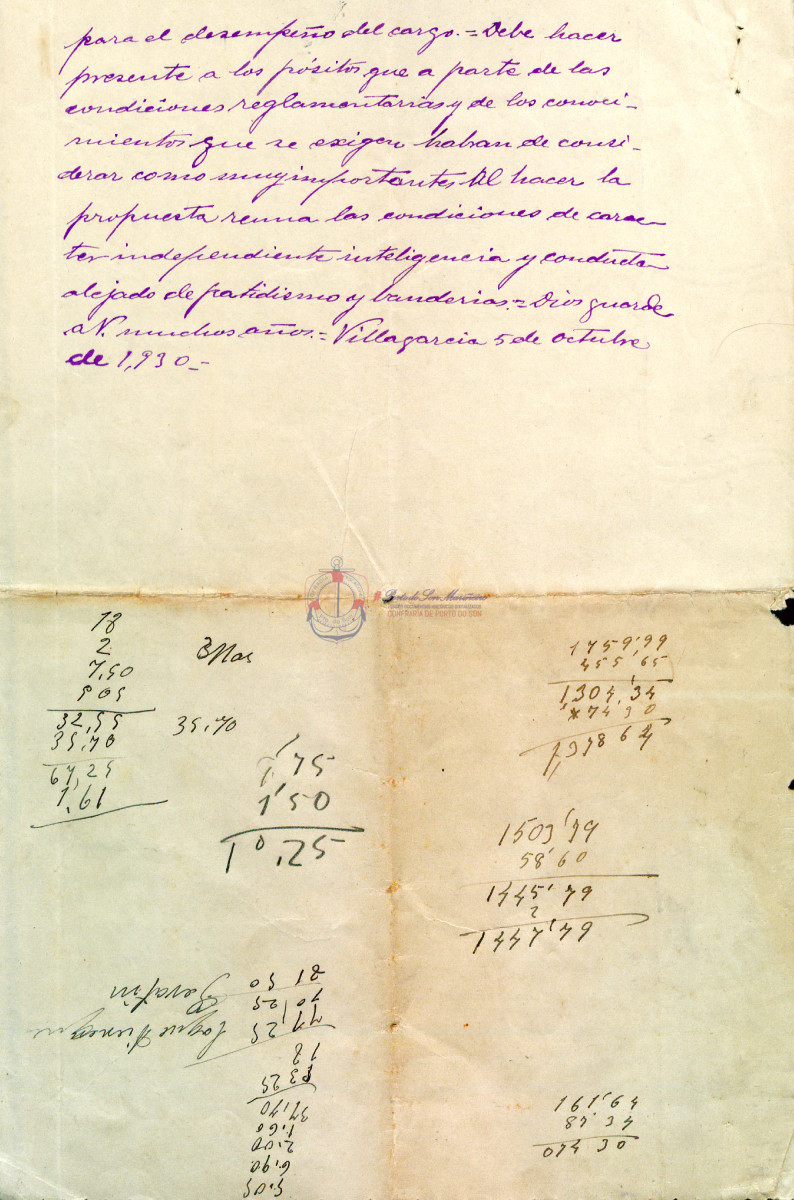 para el desempeño del cargo.= Debe hacer
presente a los pósitos que a parte de las
condiciones reglamentarias y de los conoci-
mientos que se exigen habran de consi-
derar como muy importantes Al hacer la
propuesta reuna las condiciones de carac-
ter independiente inteligencia y conducta
alejado de patidismo y banderias.= Dios guarde
a V. muchos años.= Villagarcia 5 de Octubre
de 1,930_-
CONFRARÍA DE PORTO DO SON
18
2
7,50
5 05
32,55
35,70
67,25
1,61
35,70
1'50
10,25
1759,99
455 65
1,304,34
74 30
1,378 64
1503'39
58'60
1445'79
2
1447,79
21 50
70,25
12
37,70
1.60
2.00
6,90
5.05
161,64
87 34
074 30